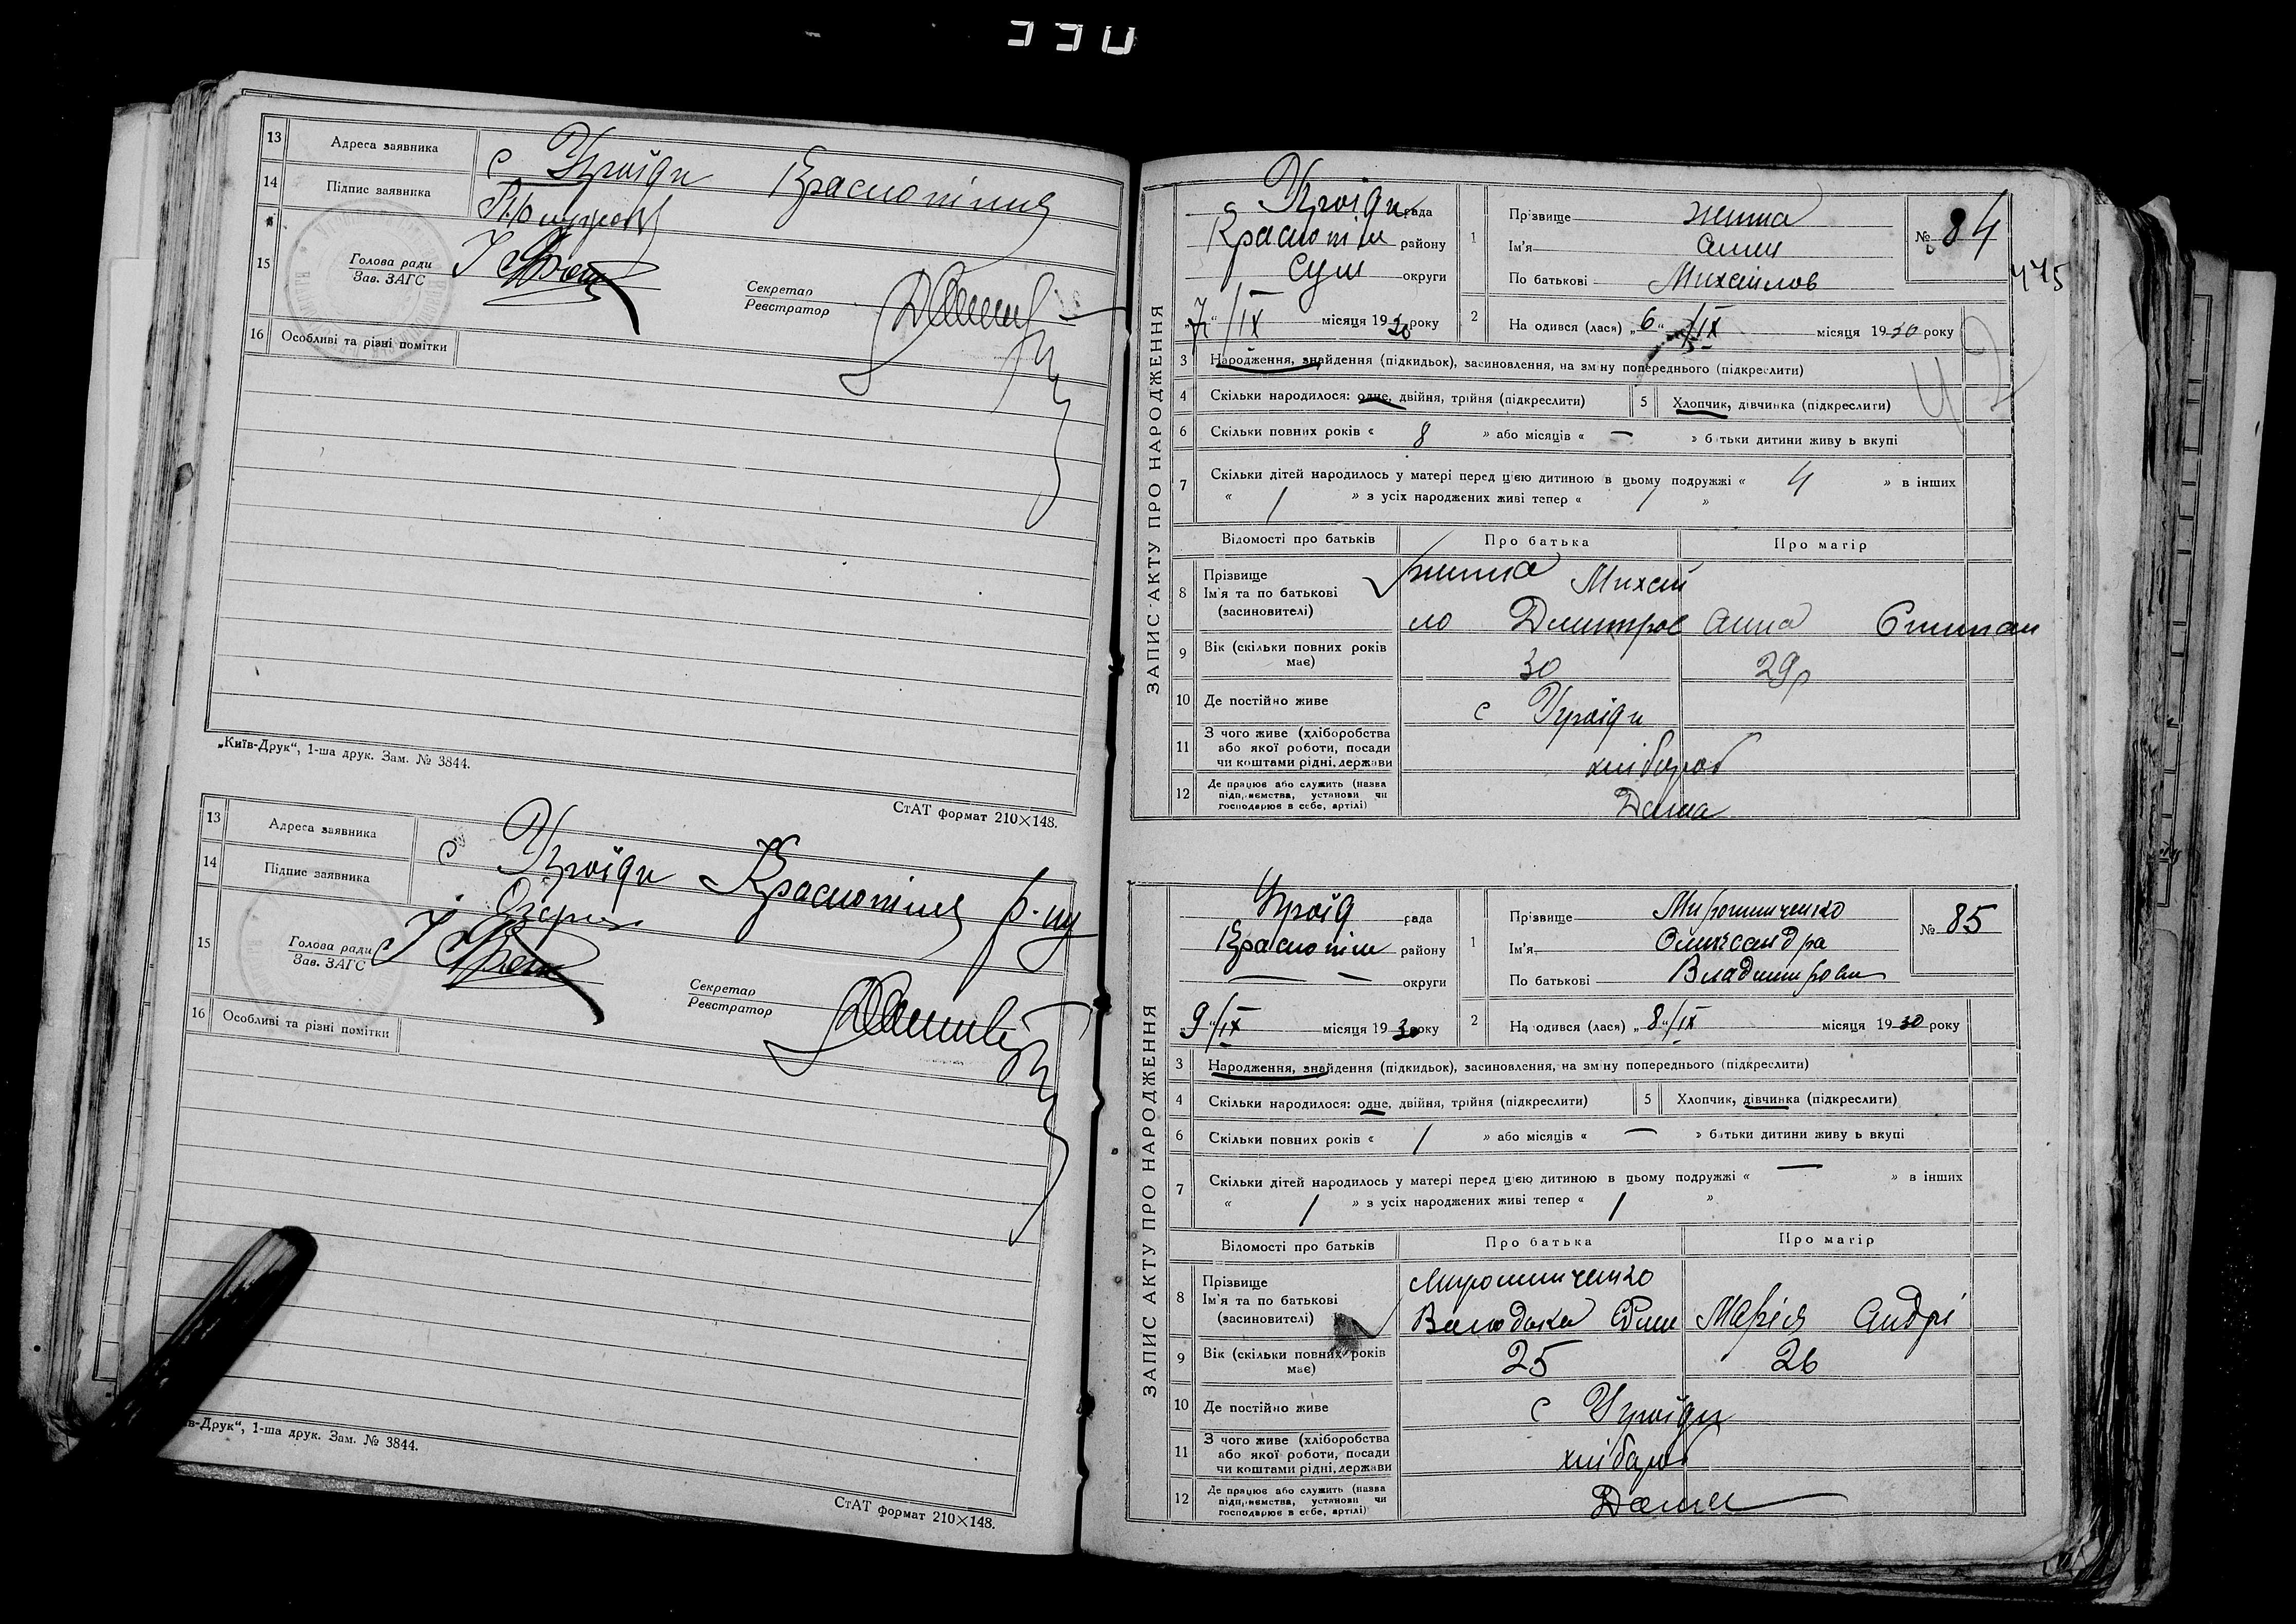 330
13 Адреса заявника с Угроїди Краснопілля
14 Підпис заявника
15 Голова ради
Зав. ЗАГС
Секретар
Реєстратор
16 Особливі та різні помітки
„Київ-Друк“, 1-ша друк. Зам. № 3844.
СтАТ формат 210×148.
13 Адреса заявника с Угроїди Краснопілля р-ну
14 Підпис заявника
15 Голова ради
Зав. ЗАГС
Секретар
Реєстратор
16 Особливі та різні помітки
в-Друк“, 1-ша друк. Зам. № 3844.
СтАТ формат 210×148.
ЗАПИС АКТУ ПРО НАРОДЖЕННЯ
Угроїди рада
Краснопіл району
Сум округи
„7“/IX місяця 1930 року
1 Прізвище
Ім'я
По батькові Михайлов
№ 84
445
2 На одився (лася) „6“/IX місяця 1930 року
3 Народження, знайдення (підкидьок), засиновлення, на зміну попереднього (підкреслити)
42
4 Скільки народилося: одне, двійня, трійня (підкреслити) 5 Хлопчик, дівчинка (підкреслити)
6 Скільки повних років « 8 » або місяців « — » батьки дитини живу ь вкупі
7 Скільки дітей народилось у матері перед цією дитиною в цьому подружжі « 4 » в інших
« / » з усіх народжених живі тепер « / »
Відомості про батьків Про батька Про матір
8 Прізвище
Ім'я та по батькові Михай
(засиновителі) ло Дмитров Анна Степан
9 Вік (скільки повних років має) 30 29р
10 Де постійно живе с Угроїди
11 З чого живе (хліборобства
або якої роботи, посади
чи коштами рідні, держави хлібороб
12 Де працює або служить (назва
підприємства, установи чи
господарює в себе, артілі) Дома
ЗАПИС АКТУ ПРО НАРОДЖЕННЯ
Угроїд рада
Краснопіл району
— — округи
9“/IX місяця 1930 року
1 Прізвище Мирошниченко
Ім'я Олександра
По батькові Владимировн
№ 85
2 На одився (лася) „8“/IX місяця 1930 року
3 Народження, знайдення (підкидьок), засиновлення, на зміну попереднього (підкреслити)
4 Скільки народилося: одне, двійня, трійня (підкреслити) 5 Хлопчик, дівчинка (підкреслити)
6 Скільки повних років « / » або місяців « — » батьки дитини живу ь вкупі
7 Скільки дітей народилось у матері перед цією дитиною в цьому подружжі « — » в інших
« / » з усіх народжених живі тепер « / »
Відомості про батьків Про батька Про матір
8 Прізвище Мирошниченко
Ім'я та по батькові
(засиновителі) Марія Андрі
9 Вік (скільки повних років має) 25 26
10 Де постійно живе с Угроїди
11 З чого живе (хліборобства
або якої роботи, посади
чи коштами рідні, держави хлібороб
12 Де працює або служить (назва
підприємства, установи чи
господарює в себе, артілі) Дома